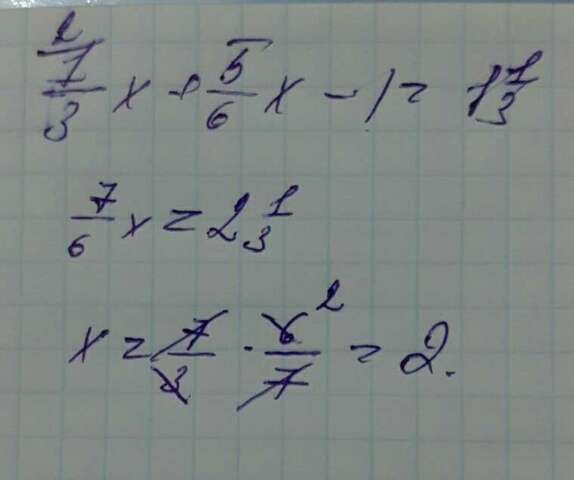 2
1/3 x + 5/6 x - 1 = 1 1/3
7/6 x = 2 1/3
x = 7/3 · 6/7 2 = 2.